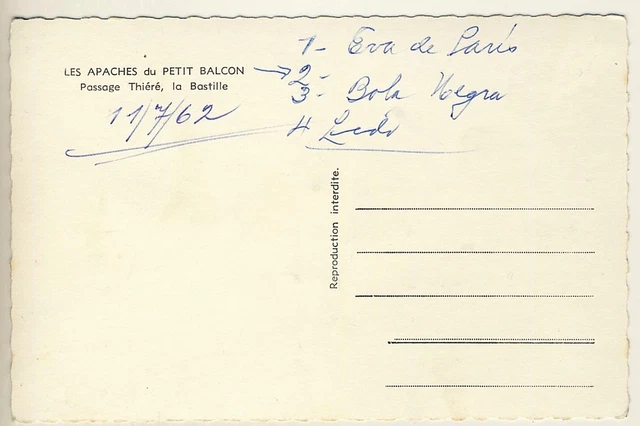 LES APACHES du PETIT BALCON
Passage Thiéré, la Bastille
11/7/62
1- Eva de Paris
→ 2-
3- Bola Negra
4 Lido
Reproduction interdite.